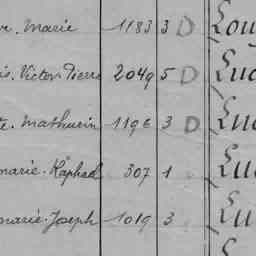 Marie 1183 3 D Lou
Victor Pierre 2049 5 D Luc
Mathurin 1196 3 D Luc
marie Raphael 307 1 Luc
marie Joseph 1019 3 Lu